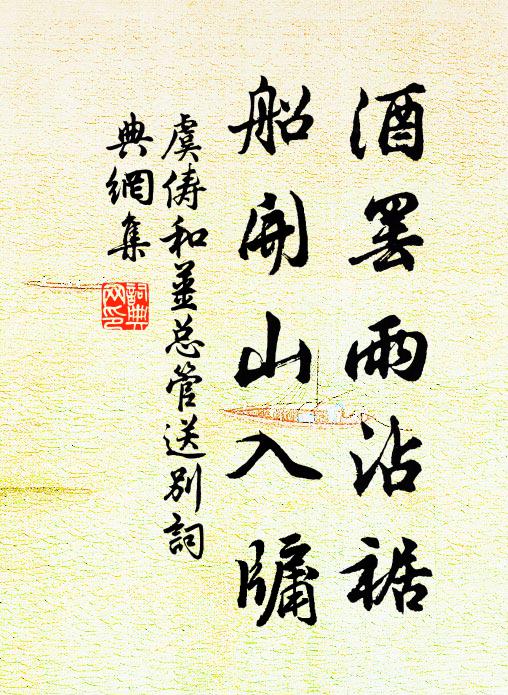 酒罢雨沾裾
船开山入牖
虞俦和姜总管送别词
典网集
词典网印